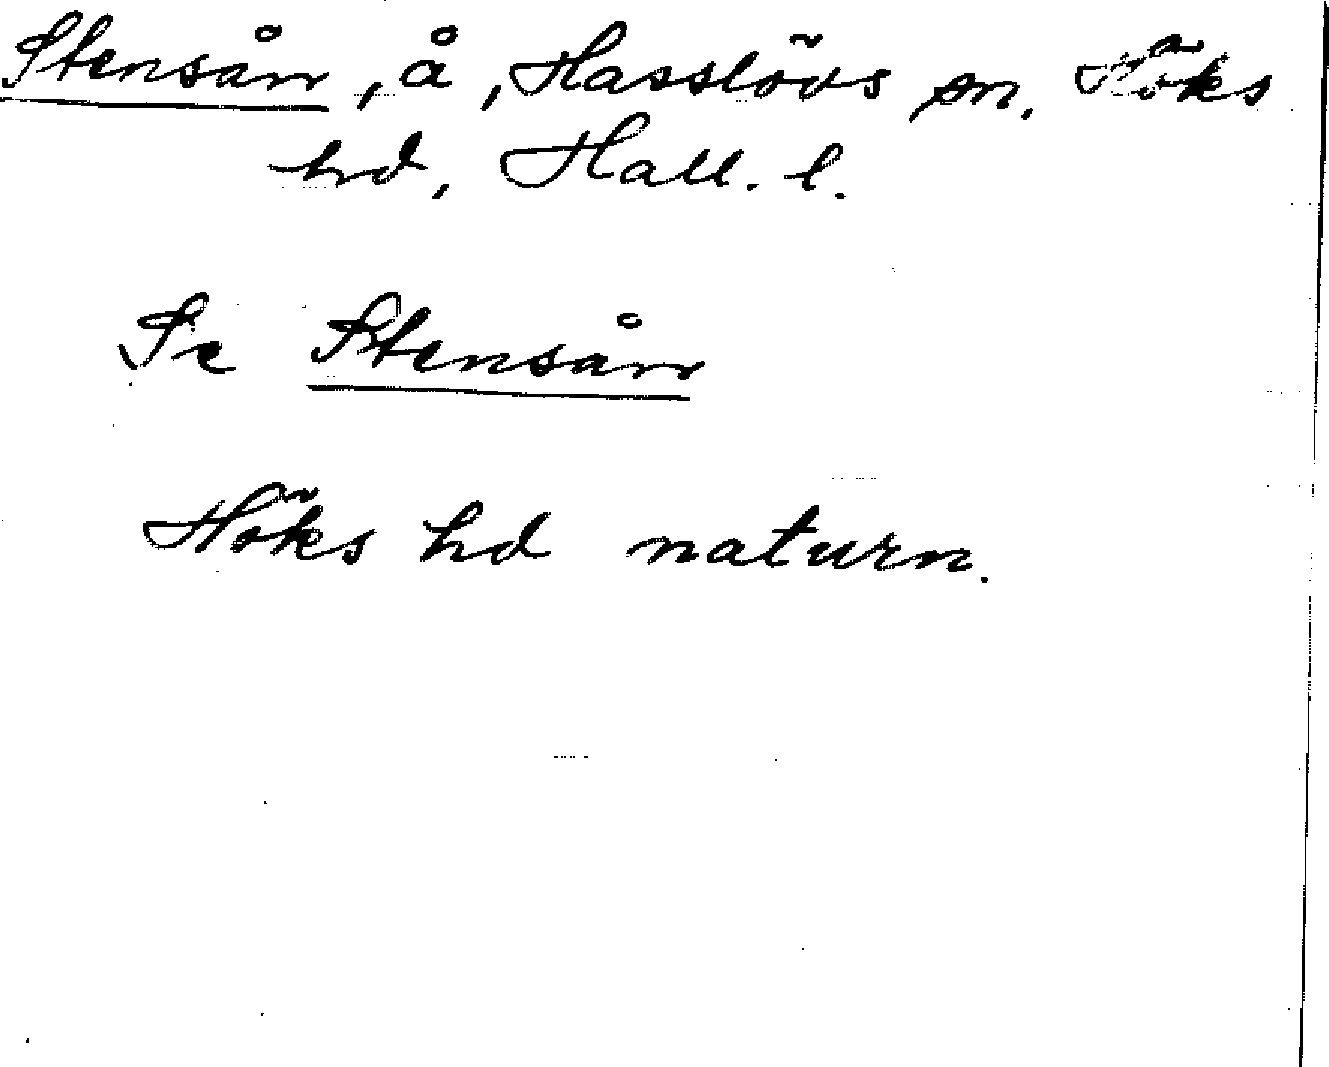 Stensån, å, Hasslövs sn. Höks
hd, Hall. l.
Se Stensån
Höks hd naturn.